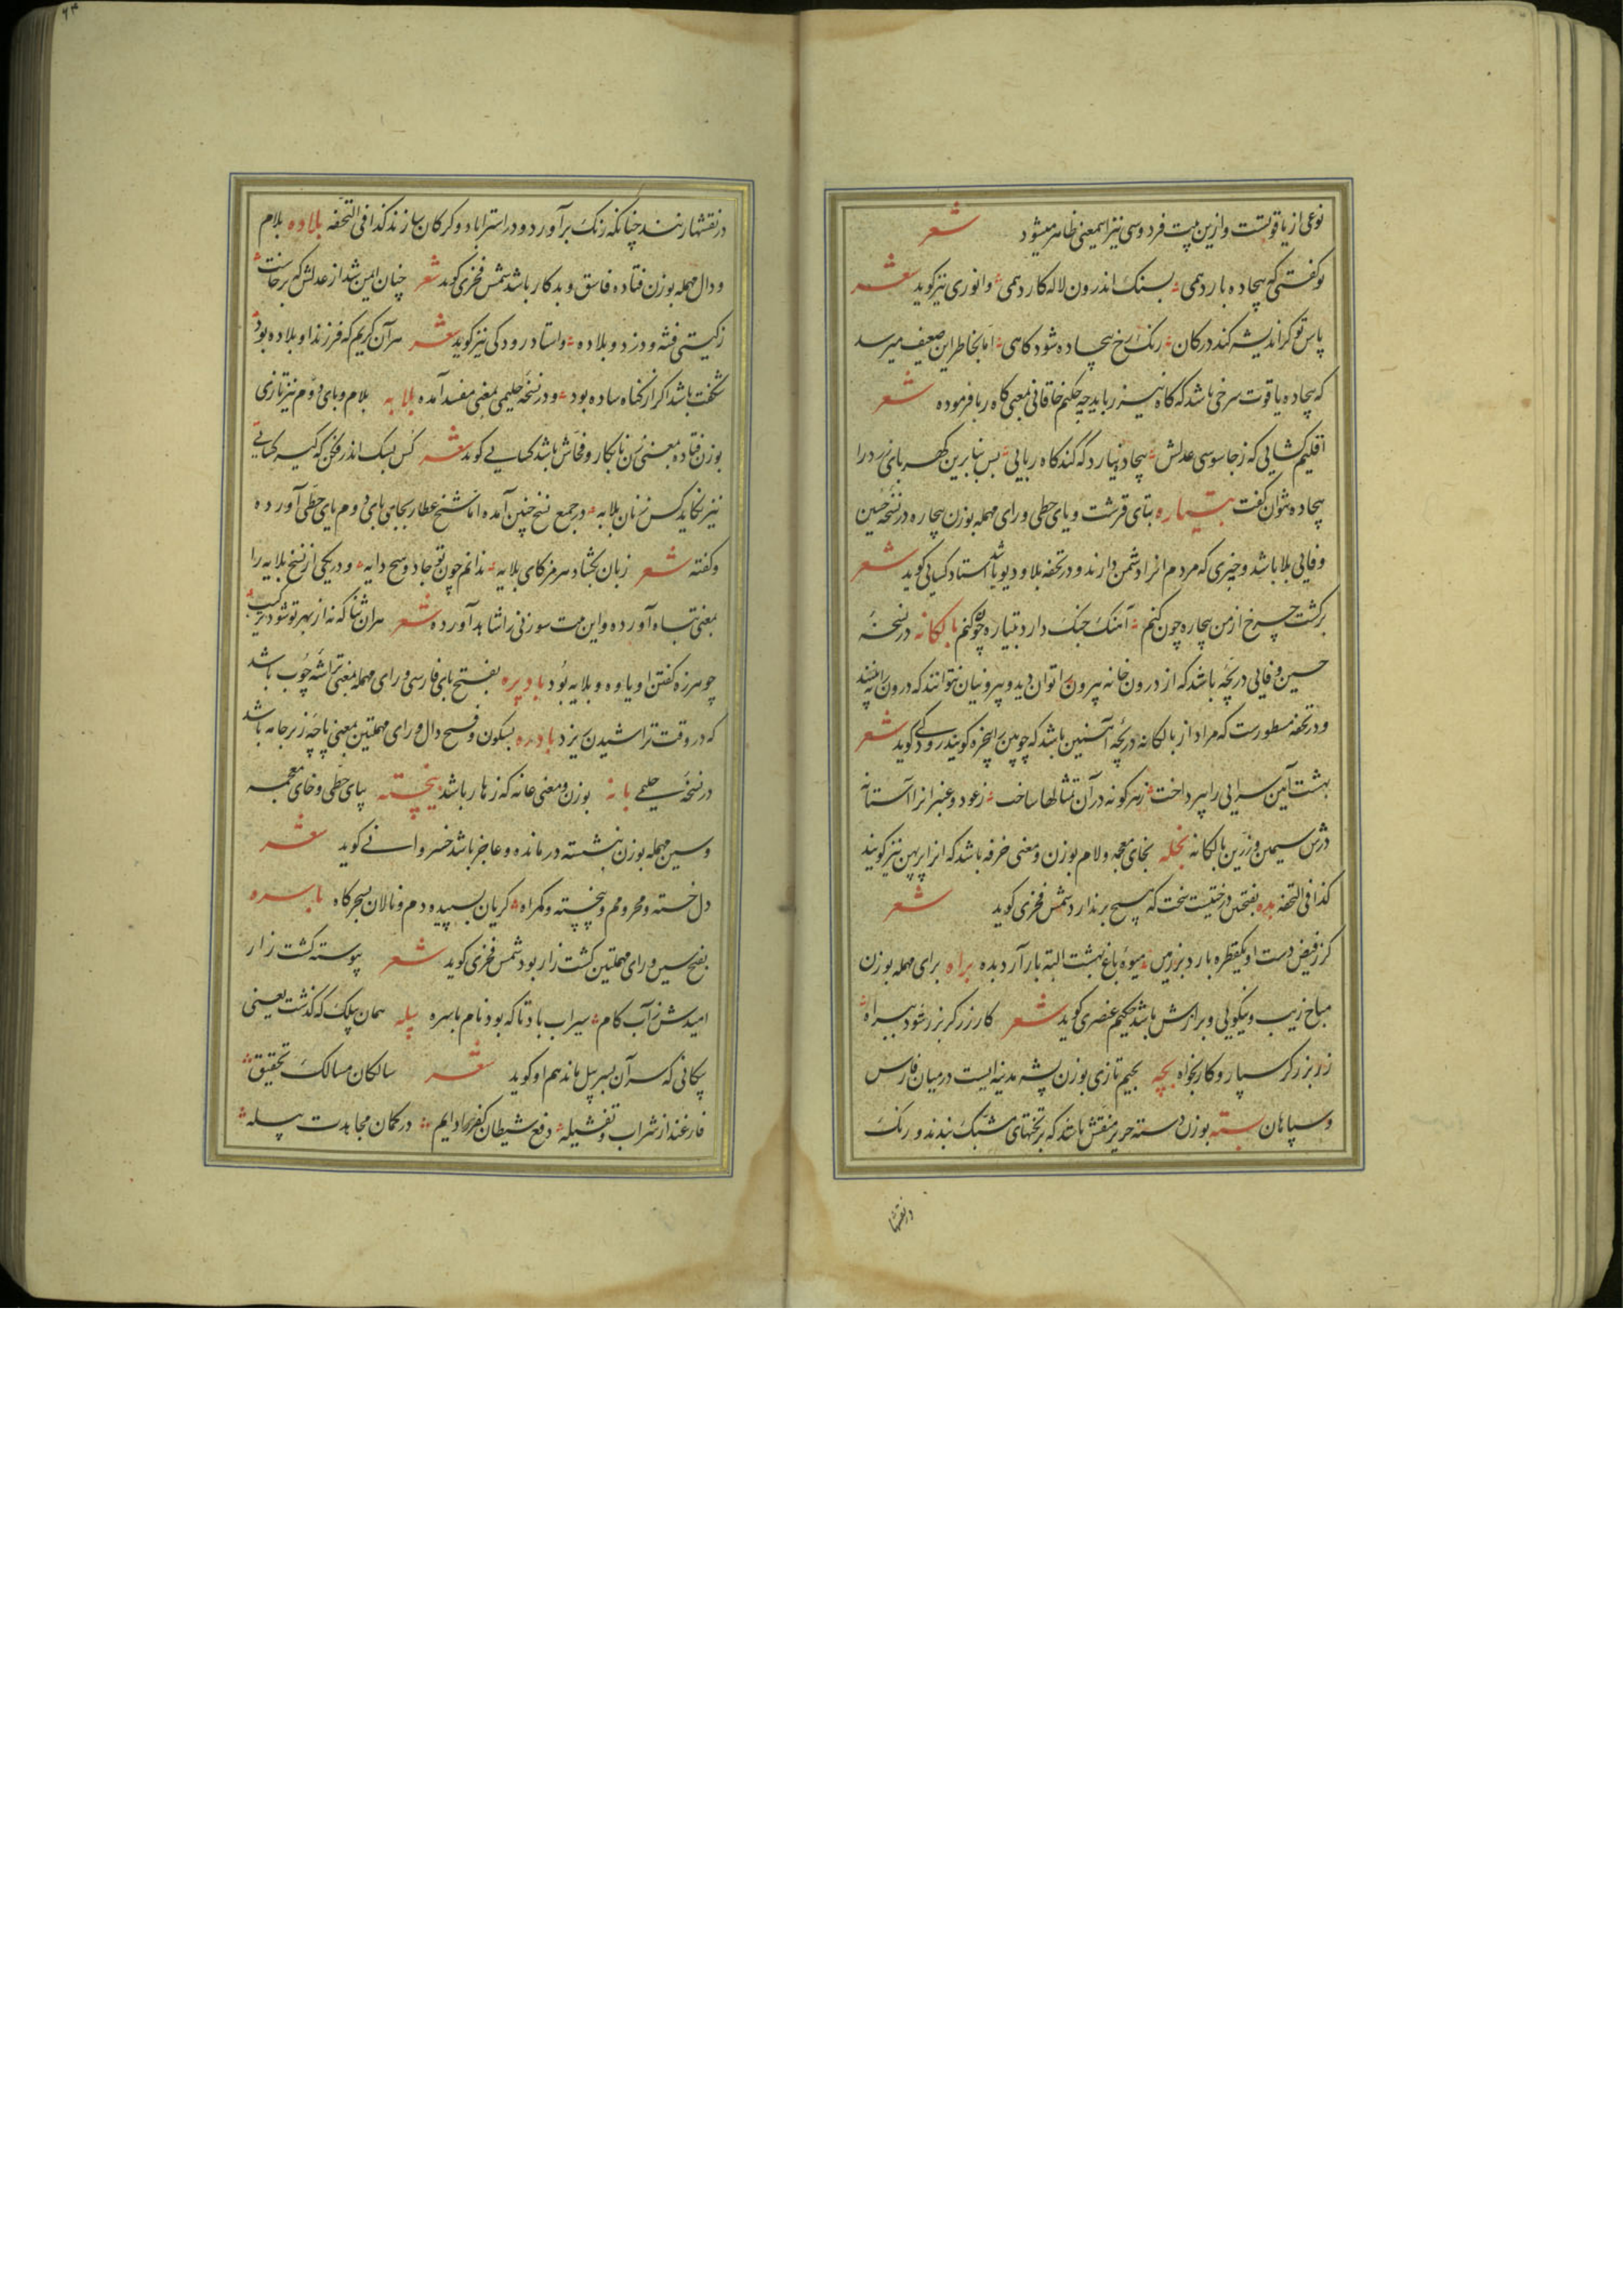 نوعی از یاقوتست و ازین بیت فردوسی نیز اسمعنی ظاهر میشود شعر
تو کفتی که بیجاده بارد همی بسنک اندرون لاله کارد همی و انوری نیز کوید شعر
پاس تو کر اندیشه کند در کان رنک رخ بیجاده شود کاهی اما بخاطر این ضعیف میرسد
که بیجاده یاقوت سرخی باشد که کاه نیز رباید چه حکیم خاقانی بمعنی کاه ربا فرموده شعر
اقلیم کشایی که ز جاسوسی عدلش بیجاده نیارد که کند کاه ربایی بس بنابرین کهربای زرد را
بیجاده بتوان کفت بتیاره بتای قرشت و یای حطی و رای مهمله بوزن بیچاره در نسخه حسین
وفایی بلا باشد و چیزی که مردم انرا دشمن دارند و در تحفه بلا و دیو باشد استاد کسایی کوید شعر
برکشت چرخ از من بیچاره چون کنم آهنک جنک دارد بتیاره چون کنم بالکانه در نسخهٔ
حسین وفایی دریچه باشد که از درون خانه بیرون را توان دید و بیرونیان نتوانند که درون را بینند
و در تحفه مسطورست که مراد از بالکانه دریچهٔ آهنین باشد که چوبین را پنجره کویند رودکی کوید شعر
بهشت آیین سرایی را بپرداخت زهر کونه در آن تمثالها ساخت ز عود و عنبر انرا آستانه
درش سیمین و زرین بالکانه بخله بخای معجمه و لام بوزن و معنی خرفه باشد که انرا پرپهن نیز کویند
کذا فی التحفه بده بفتحتین درختیست سخت که هیچ بر ندارد شمس فخری کوید شعر
کر ز فیض دست او یکقطره بارد بر زمین میوهٔ باغ بهشت البته بار آرد بده براه برای مهمله بوزن
مباح زیب و نیکویی و برازش باشد حکیم عنصری کوید شعر کار زرکر بزر شود ببراه
زر بزرکر سپار و کار بخواه بجه بجیم تازی بوزن پشه مدینه ایست در میان فارس
و سپاهان بسته بوزن دسته حریر منقش باشد که بر تختهای مشبک بندند و رنک
در نقشها
۶۳
در نقشها ریزند چنانکه رنک برآورد و در استراباد و کرکان سازند کذا فی التحفه بلاده بلام
و دال مهمله بوزن فتاده فاسق و بدکار باشد شمس فخری کوید شعر چنان ایمن شد از عدلش که برخاست
ز کیتی فتنه و دزد و بلاده و استاد رودکی نیز کوید شعر هر آن کریم که فرزند او بلاده بود
شکفت باشد اکر از کناه ساده بود و در نسخه حلیمی بمعنی مفسد آمده بلابه بلام و بای دوم نیز تازی
بوزن فتاده بمعنی زن نابکار و فحاش باشد کسایی کوید شعر
نیز نخاید کس زنان بلابه در جمع نسخ چنین آمده اما شیخ عطار بجای بای دوم یای حطی آورده
و کفته شعر زبان بکشاد هرمز کای بلایه ندانم چون تو جادو هیچ دایه و در یکی از نسخ بلایه را
بمعنی تباه آورده و این بیت سوزنی را شاهد آورده شعر هران ثنا که نه از بهر تو شود ترکیب
چو هرزه کفتن او یاوه و بلایه بود بادپره بفتح بای فارسی و رای مهمله بمعنی تراشه چوب باشد
که در وقت تراشیدن بریزد بادره بسکون و فتح دال و رای مهملتین بمعنی پاچه زیرجامه باشد
در نسخهٔ حلیمی بانه بوزن و معنی عانه که زهار باشد بیخسته بیای حطی و خای معجمه
و سین مهمله بوزن بنشسته درمانده و عاجز باشد خسروانی کوید شعر
دل خسته و محرومم و بیخسته و کمراه کریان بسپیده دم و نالان بسحرکاه باسره
بفتح سین و رای مهملتین کشت زار بود شمس فخری کوید شعر پیوسته کشت زار
امیدش ز آب کام سیراب باد تا که بود نام باسره بیله همان بیلک که کذشت یعنی
پیکانی که سر آن بسر بیل ماند هم او کوید شعر سالکان مسالک تحقیق
فارغند از شراب و تفشیله دفع شیطان در کمان مجاهدت بیله